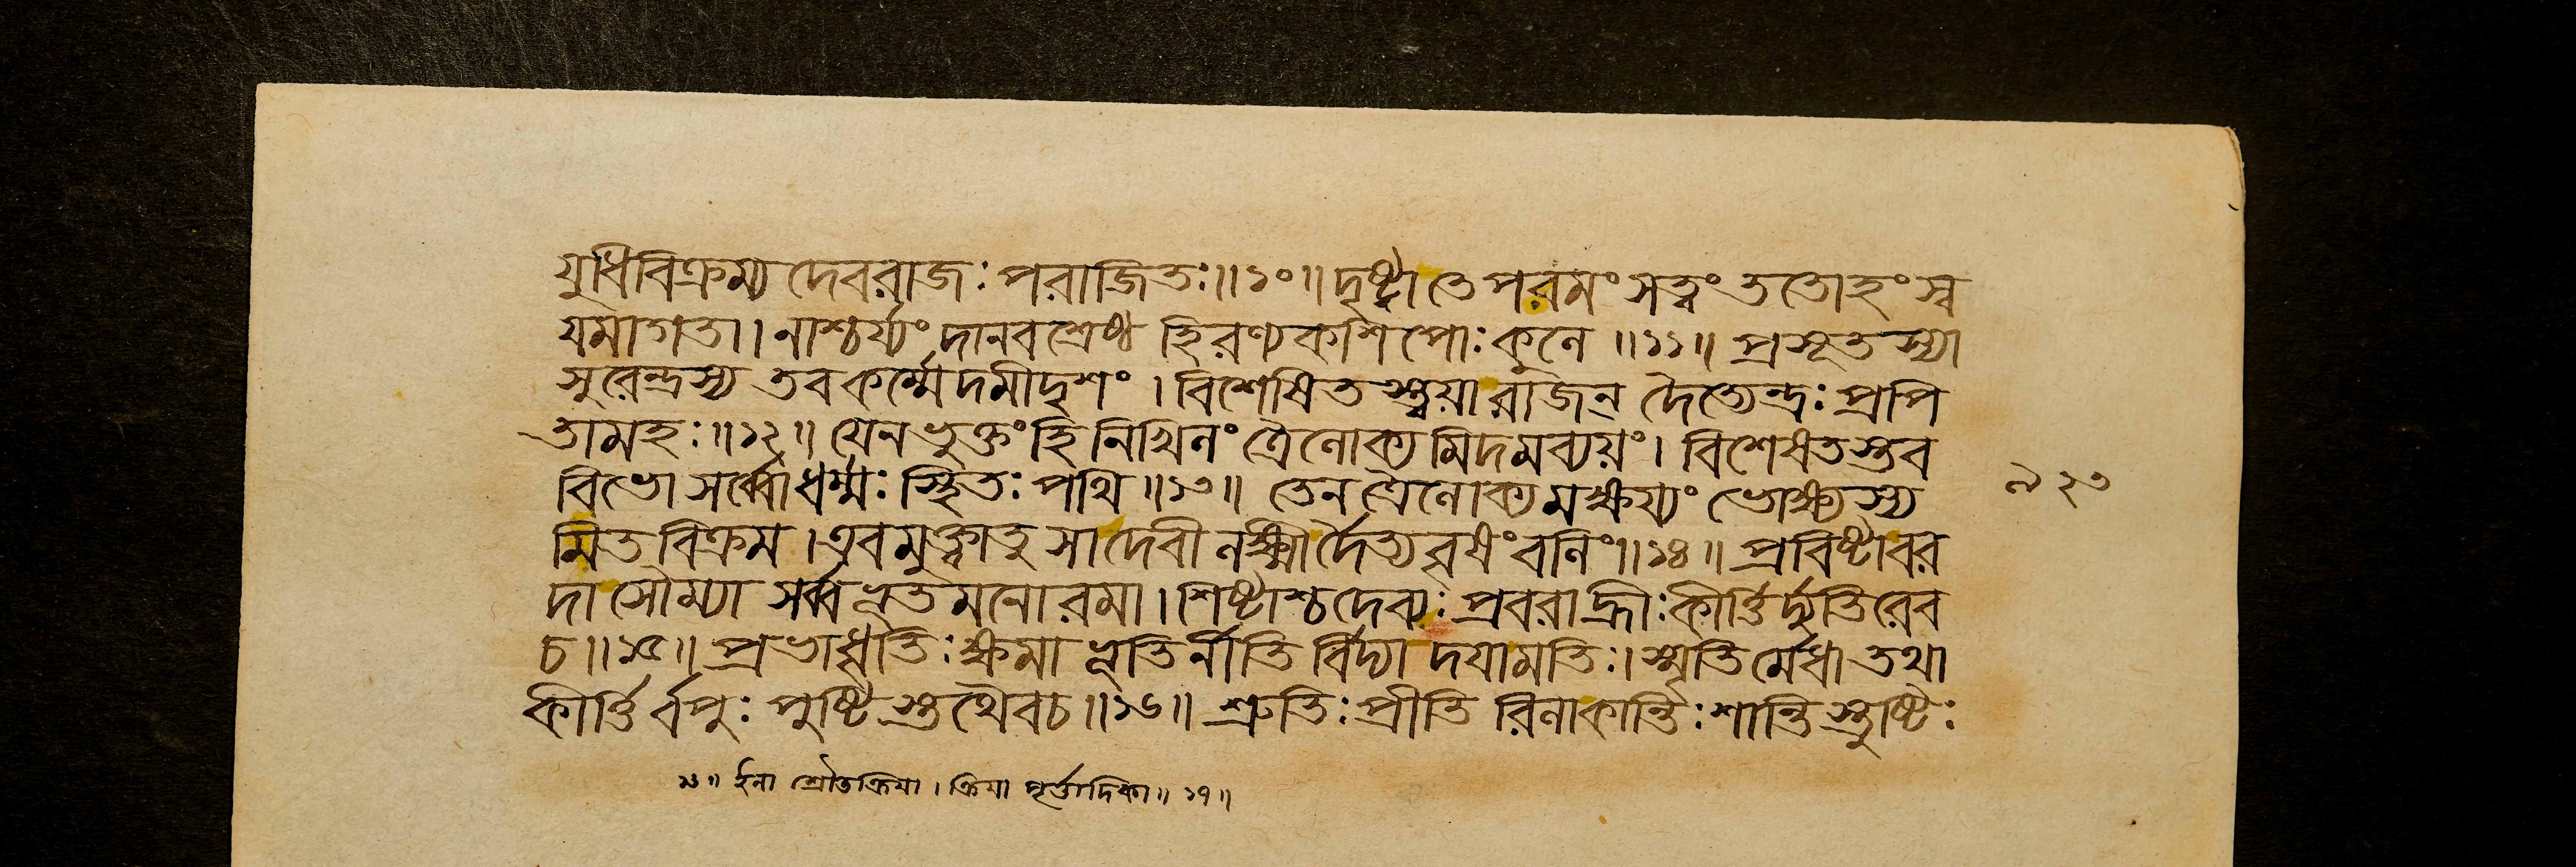 যুধিবিক্রম্য দেবরাজঃ পরাজিতঃ॥১০॥ দৃষ্ট্বা তে পরমং সত্ত্বং ততোহং স্ব
য়মাগতা। নাশ্চর্য্যং দানবশ্রেষ্ঠ হিরণ্যকশিপোঃ কুলে ॥১১॥ প্রসূতস্যা
সুরেন্দ্রস্য তব কর্ম্মেদমীদৃশং । বিশেষিতস্ত্বয়া রাজন্ দৈত্যেন্দ্রঃ প্রপি
তামহঃ॥১২॥ যেন ভুক্তং হি নিখিলং ত্রৈলোক্যমিদমব্যয়ং। বিশেষতস্তব
বিভো সর্ব্বোধর্ম্মঃ স্থিতঃ পথি॥১৩॥ তেন ত্রৈলোক্যমক্ষয্যং ভোক্ষ্যস্য
মিতবিক্রম । এবমুক্ত্বা তু সা দেবী লক্ষ্মীর্দৈত্যবৃষং বলিং॥১৪॥ প্রবিষ্টা বর
দা সৌম্যা সর্ব্বভূতমনোরমা। শিষ্টাশ্চ দেব্যঃ প্রবরা হ্রীঃ কীর্ত্তির্দ্যুতিরেব
চ॥১৫॥ প্রভা ধৃতিঃ ক্ষমা ভূতির্নীতির্বিদ্যা দয়া মতিঃ। স্মৃতির্মেধা তথা
কীর্ত্তির্বপুঃ পুষ্টিস্তথৈব চ॥১৬॥ শ্রুতিঃ প্রীতিরিলা কান্তিঃ শান্তিস্তুষ্টিঃ
ইলা শ্রৌতক্রিয়া। ক্রিয়া পূর্ত্তাদিকা॥ ১৭॥